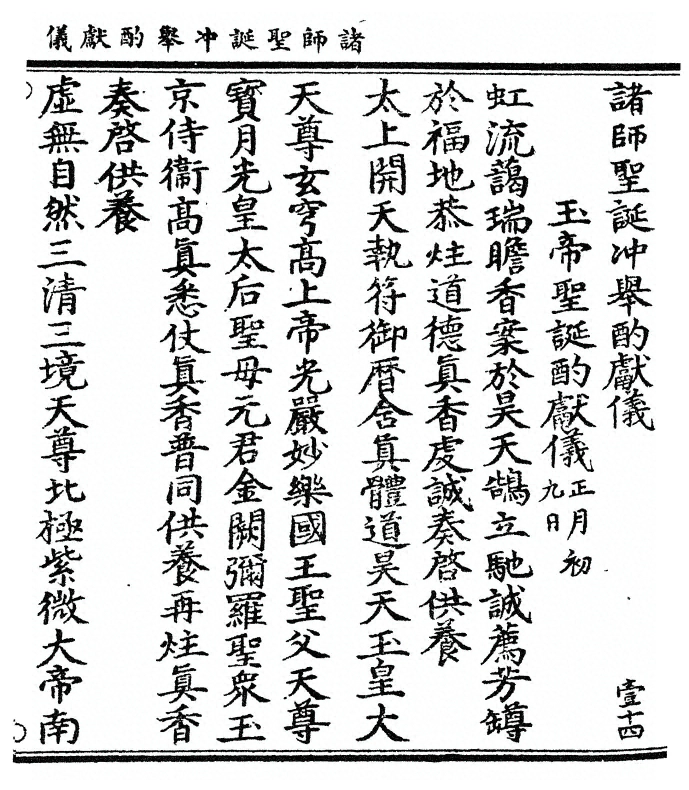 諸師聖誕冲舉酌獻儀
諸師聖誕冲舉酌獻儀 壹十四
玉帝聖誕酌獻儀 正月初九日
虹流藹瑞瞻香案於昊天鵠立馳誠薦芳罇
於福地恭炷道德真香虔誠奏啓供養
太上開天執符御曆含真體道昊天玉皇大
天尊玄穹高上帝光嚴妙樂國王聖父天尊
寶月光皇太后聖母元君金闕彌羅聖衆玉
京侍衞高真悉仗真香普同供養再炷真香
奏啓供養
虛無自然三清三境天尊北極紫微大帝南